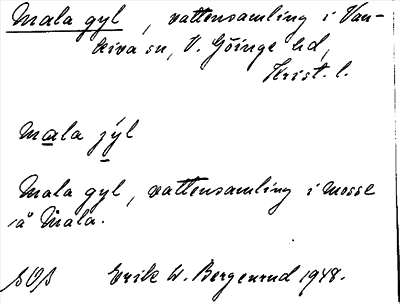 Mala gyl, vattensamling i Van-
keiva sn, V. Göinge hd,
Krist. l.
mala jýl
Mala gyl, vattensamling i mosse
på Mala.
Erik W. Bergenrud 1948.